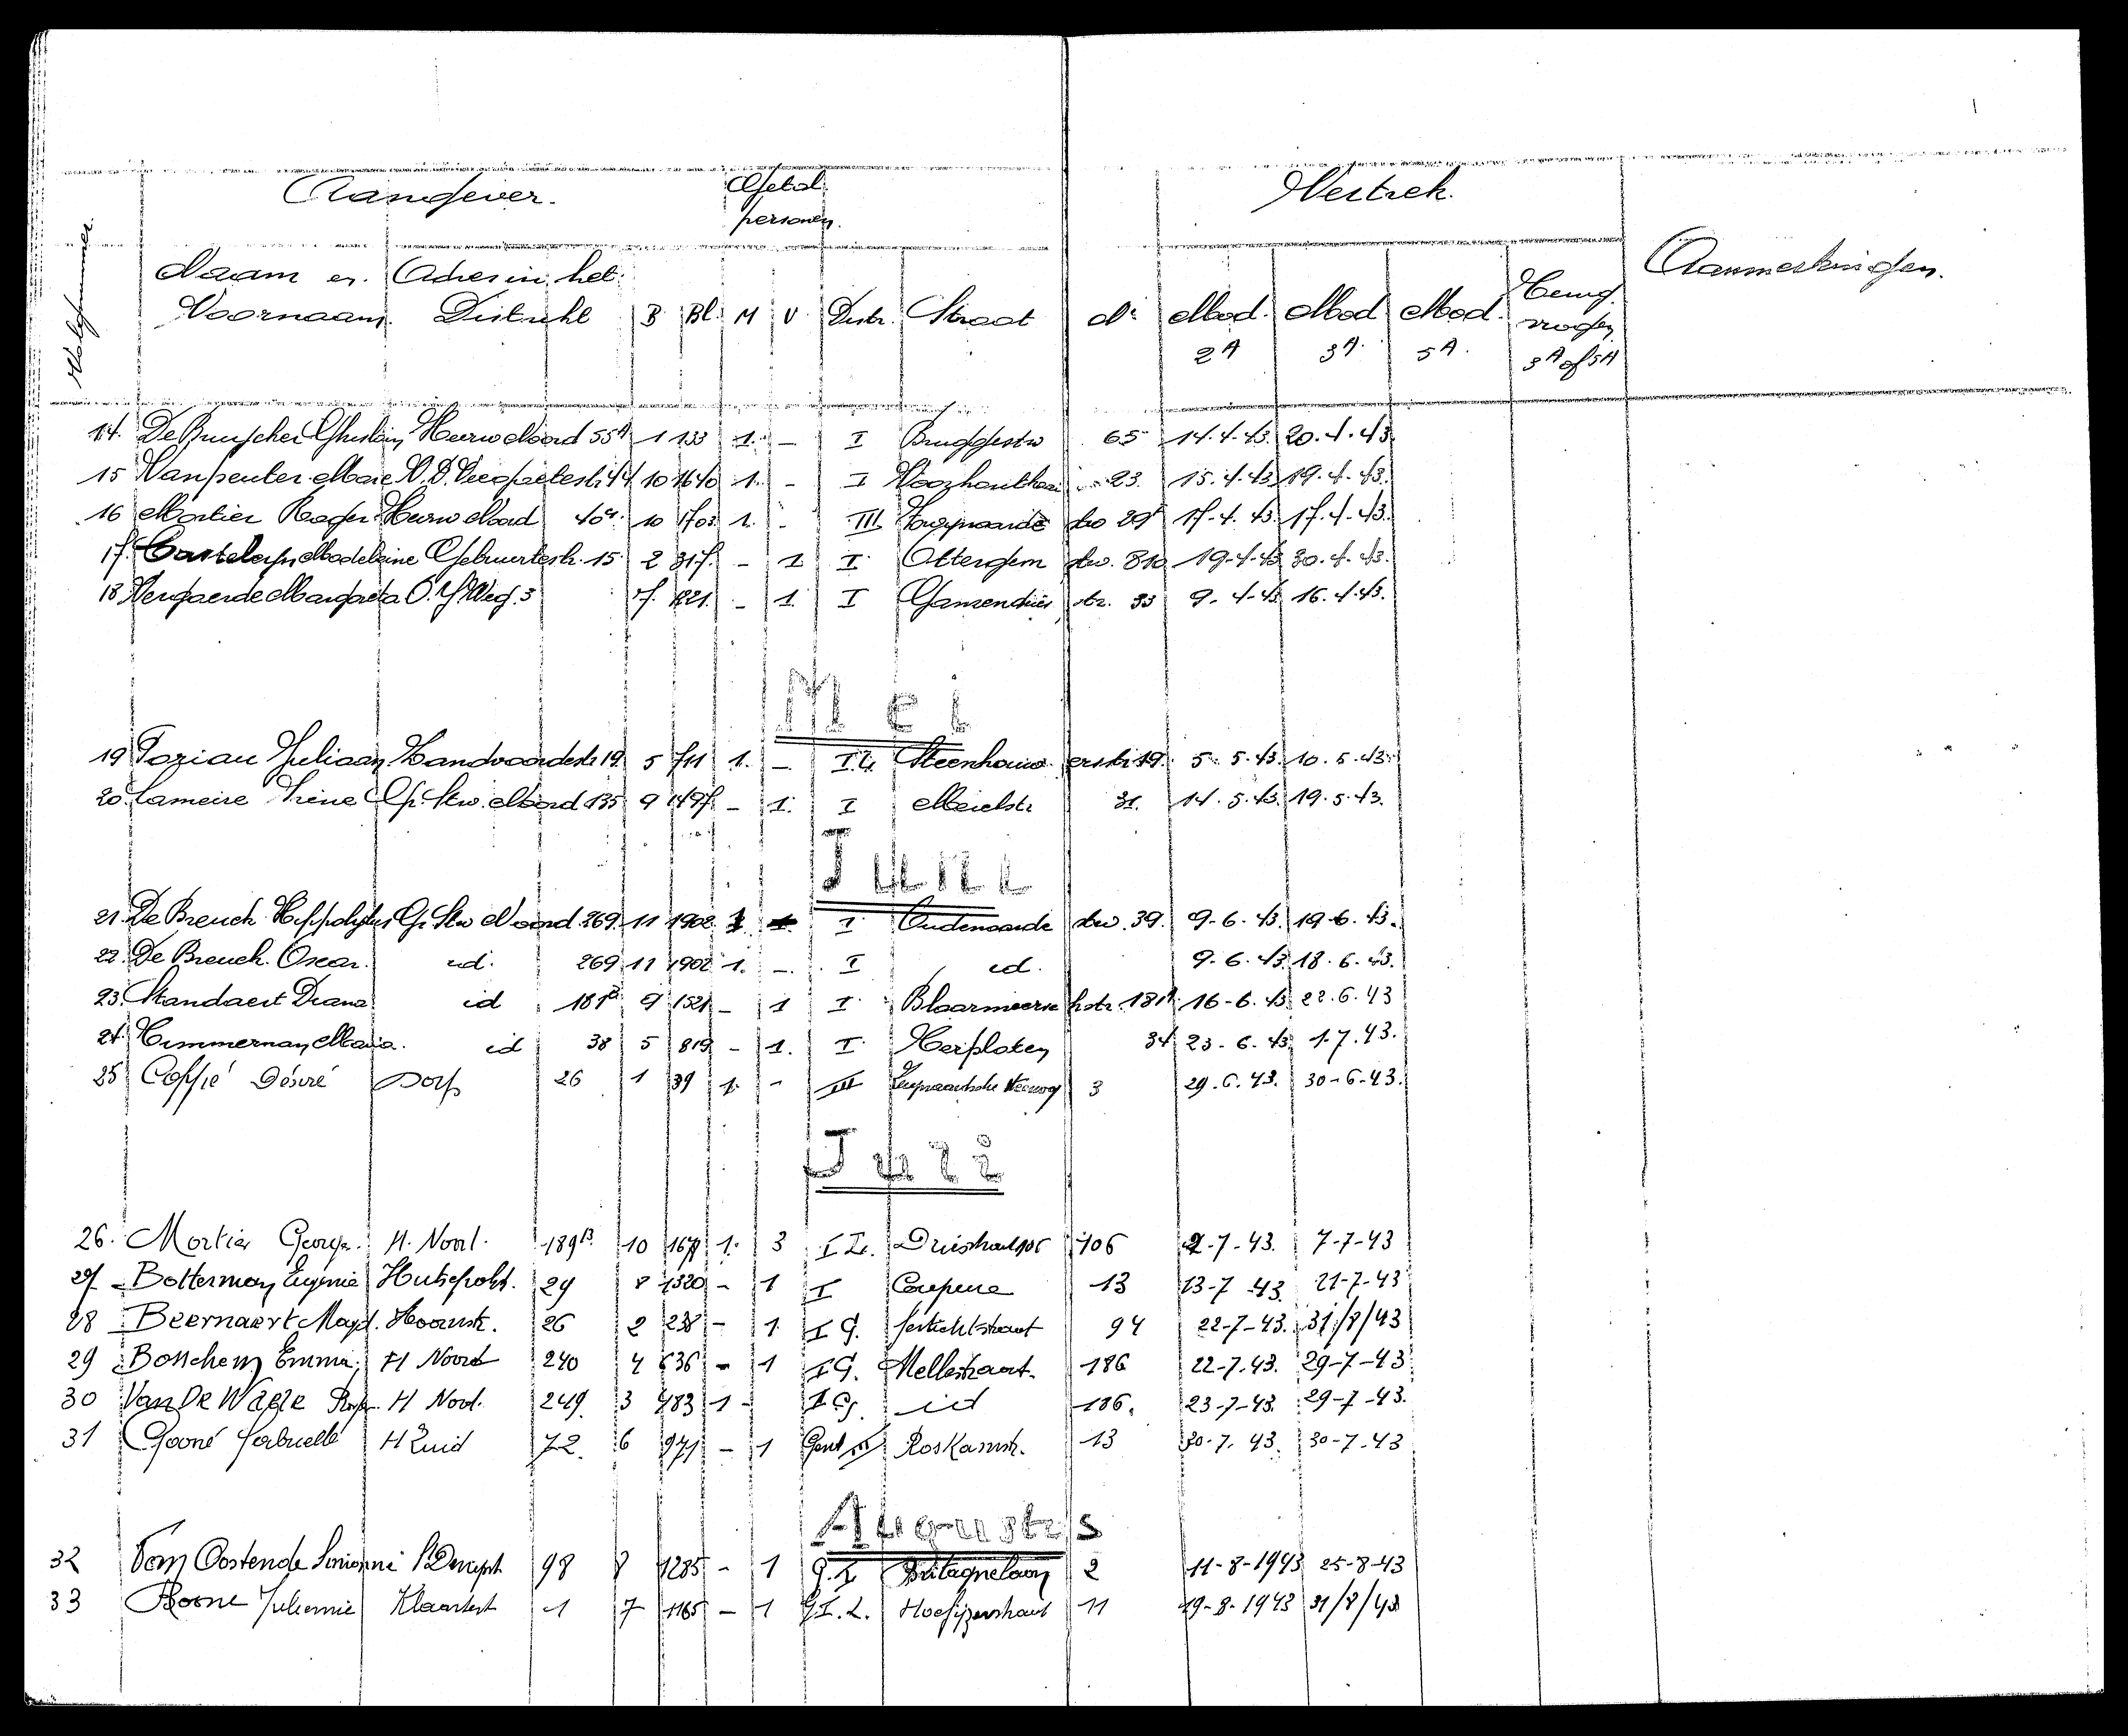 Aangever. Getal personen. Vertrek.
Volgnummer Naam en Voornaam Adres in het Distrikt B Bl. M V. Distr. Straat N° Mod. 2A Mod 3A. Mod. 5A. Terug 3A of 5A Aanmerkingen.
14. Heirw Noord 55A 1 133 1. - I 65 14.4.43. 20.4.43.
15 Vanpeuter 44 10 1640 1. - I 23. 15.4.43 19.4.43.
16 Mortier Roger Heirw Noord 40A. 10 1703 1. - III 17.4.43. 17.4.43.
17. Casteleyn Madeleine Geboortestr. 15 2 317. - 1 I Ottergem stw. 810 19.4.43 30.4.43.
18 Vergaerde Margareta O.L.V.Weg. 3 7. 1221. - 1. I str. 33 9.4.43 16.4.43.
Mei
19 Juliaan 19. 5 711 1. - I.L. Steenhouwerstr. 19. 5.5.43. 10.5.43.
20 Lameire Irène G. Stw. Noord 135 9 1497 - 1. I Meerlstr 31. 14.5.43. 19.5.43.
Juni
21. De Breuck Hippolytus G. Stw Noord. 269. 11 1902 1 I Oudenaarde stw. 39. 9-6.43. 19-6.43.
22. De Breuck. Oscar. id. 269 11 1902 1. - I id. 9.6.43. 18.6.43.
23. Standaert Diana id 181B 9 1521 - 1 I Blaarmeersch str. 181A. 16-6.43. 22.6.43
24. Timmerman Maria. id 38 5 819 - 1. I Kerploten 34 23.6.43. 1.7.43.
25 Coppié Désiré Dorp 26 1 39 1. - III 3 29.6.43. 30-6-43.
Juli
26. Mortier H. Nord. 189B. 10 1. 3 I L. Drieshout 106 106 2-7-43. 7-7-43
27 Botterman Eugenie Hutsepotstr. 29 8 1320 - 1 I Coupure 13 13-7-43. 21-7-43
28 Beernaert Magd. Hoornstr. 26 2 238 - 1 I G. 94 22-7-43. 31/8/43
29 Emma H Noord 240 4 636 - 1 I G. Mellestraat. 186 22-7.43. 29-7-43
30 Van De Waele H Nord. 249 3 483 1 - I G. id 186. 23-7-43. 29-7-43.
31 Gooné Gabrielle H Zuid 72. 6 971 - 1 Gent III Roskamstr. 13 30-7.43. 30-7-43
Augustus
32 Van Oostende 98 8 1285 - 1 G. I Britagnelaan 2 11-8-1943 25-8-43
33 Boone Juliennie 1 7 1165 - 1 G I.L. Hoefijzerstraat 11 19-8-1943 31/8/43